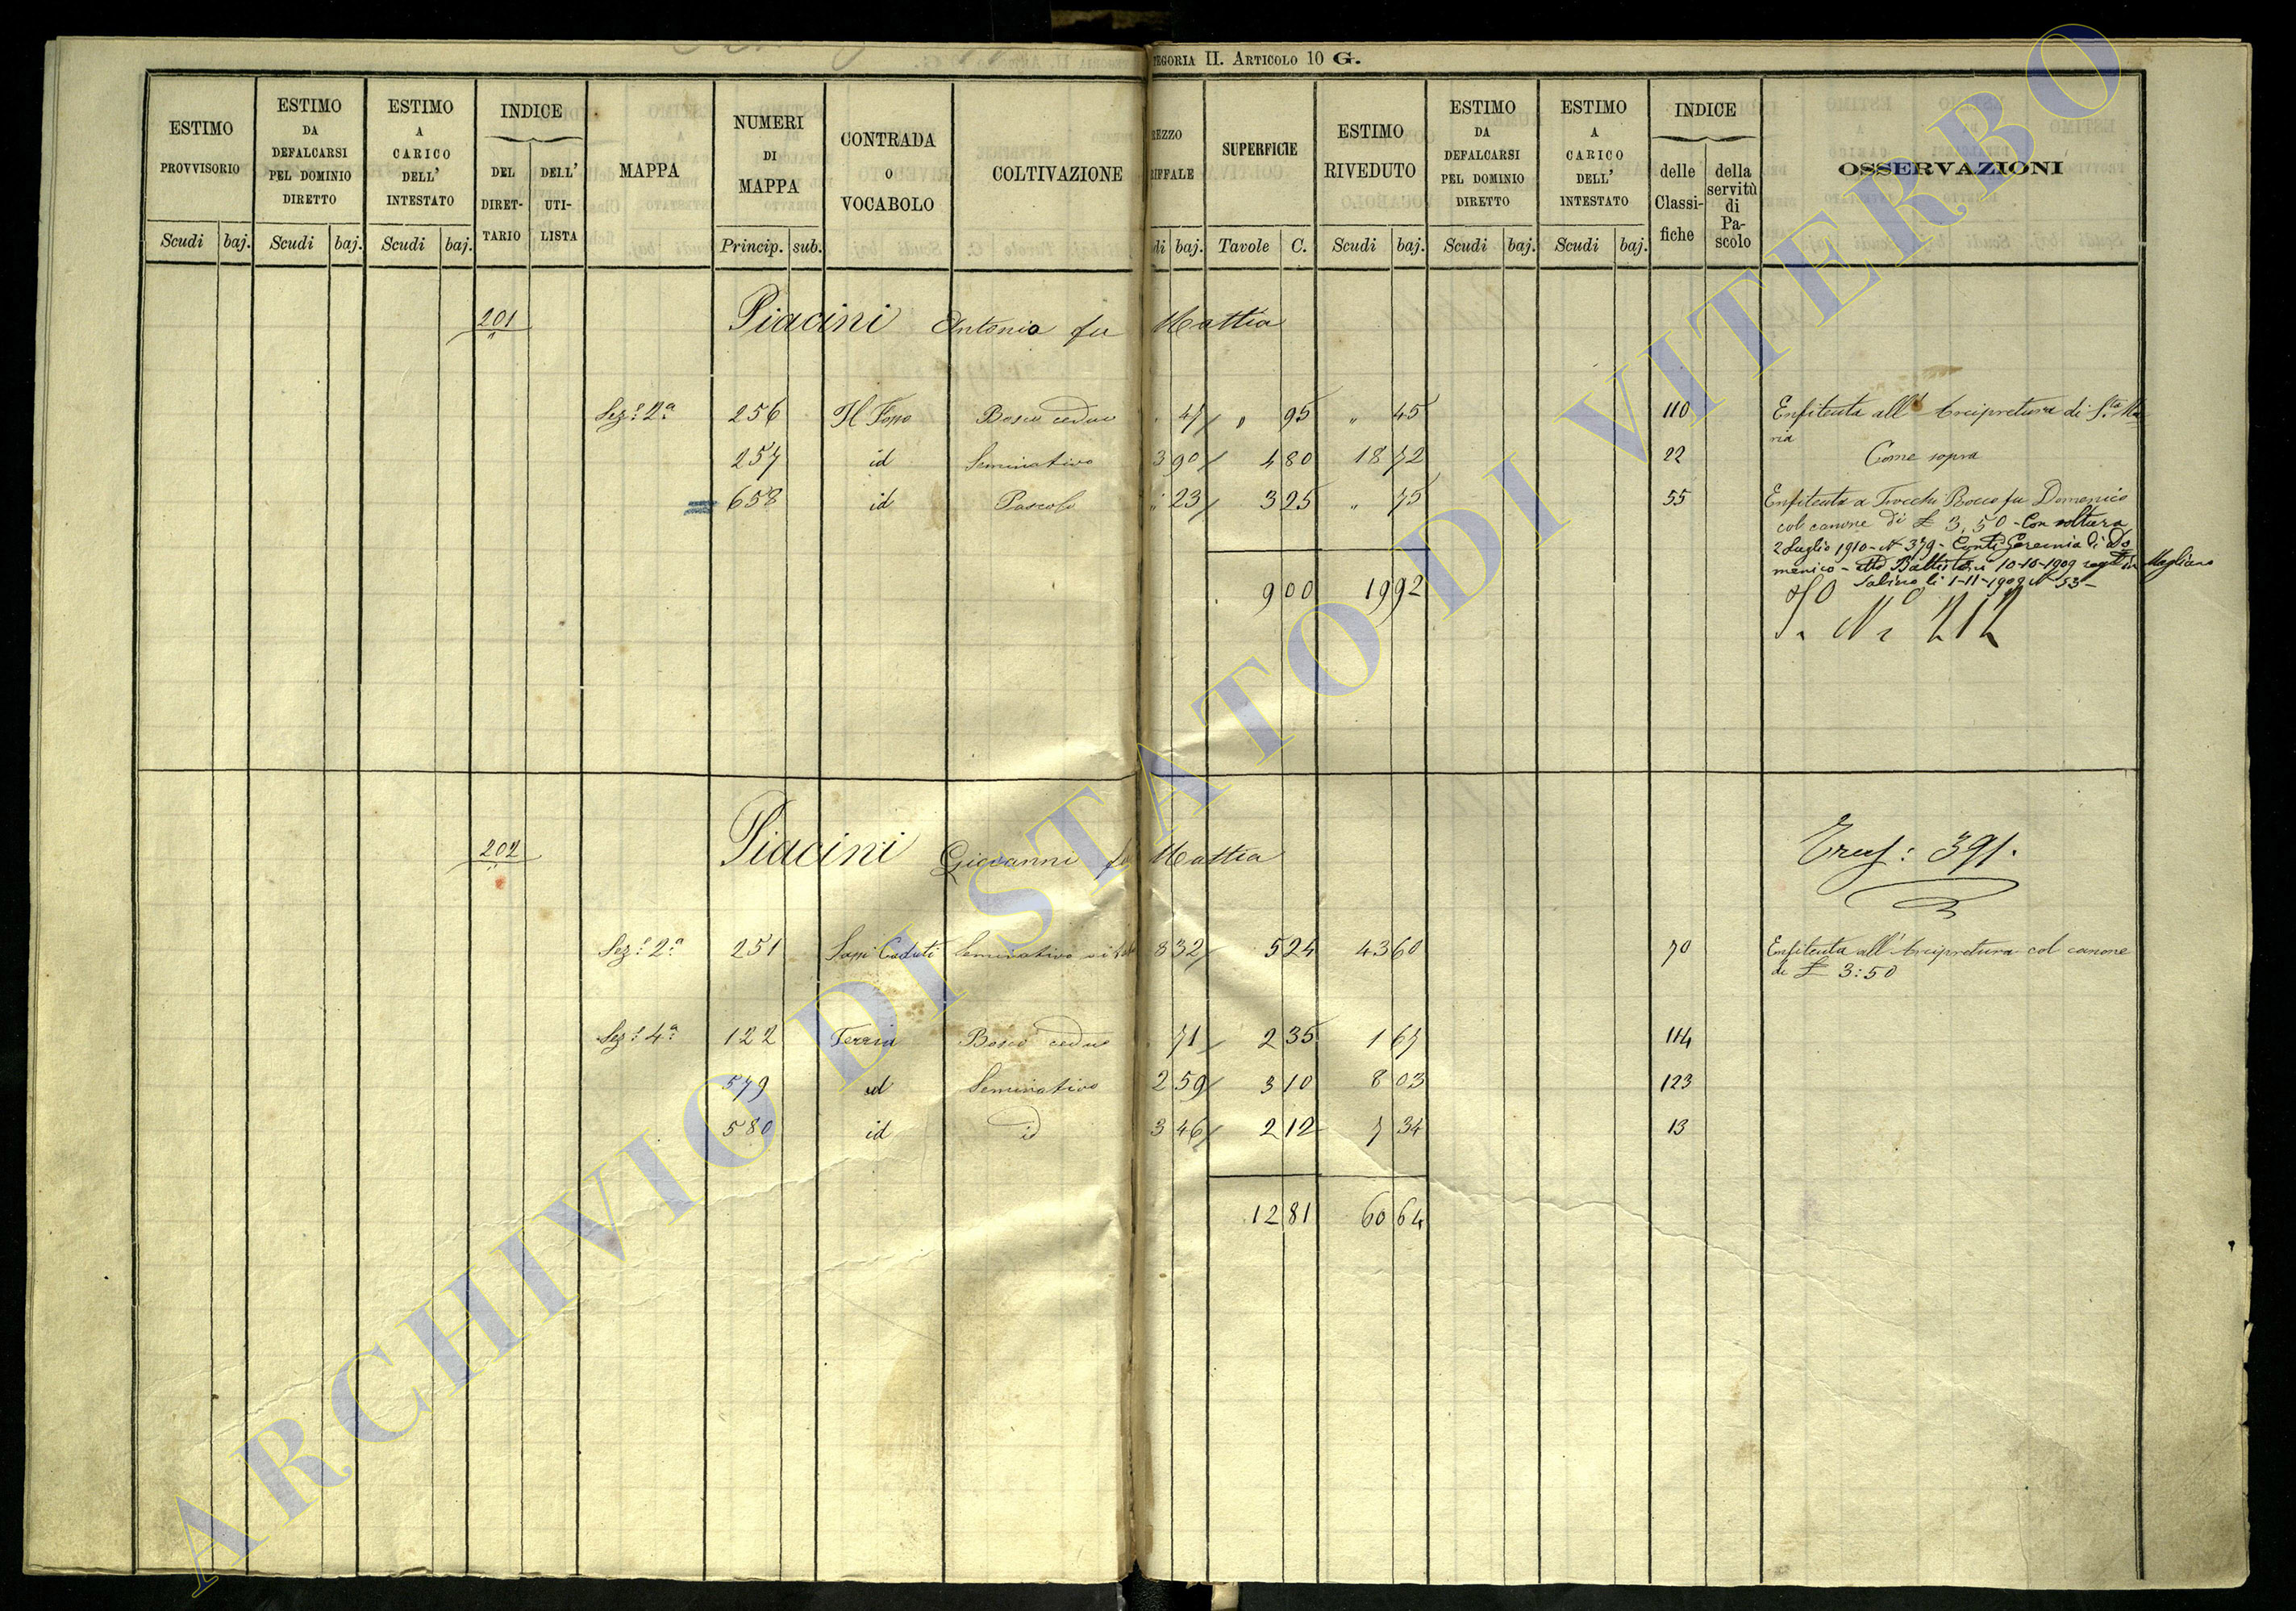 CATEGORIA II. ARTICOLO 10 G.
ESTIMO PROVVISORIO Scudi baj.
ESTIMO DA DEFALCARSI PEL DOMINIO DIRETTO Scudi baj.
ESTIMO A CARICO DELL' INTESTATO Scudi baj.
INDICE DEL DIRET-TARIO DELL' UTI-LISTA
MAPPA
NUMERI DI MAPPA Princip. sub.
CONTRADA O VOCABOLO
COLTIVAZIONE
REZZO RIFFALE di baj.
SUPERFICIE Tavole C.
ESTIMO RIVEDUTO Scudi baj.
ESTIMO DA DEFALCARSI PEL DOMINIO DIRETTO Scudi baj.
ESTIMO A CARICO DELL' INTESTATO Scudi baj.
INDICE delle Classi-fiche della servitù di Pa-scolo
OSSERVAZIONI
201 Piacini Antonio fu Mattia
Sez.e 2a 256 Il Fosso Bosco ceduo " 47 " 95 " 45 110 Enfiteuta all' Arcipretura di S.ta Ma=
ria
257 id Seminativo 3 90 4 80 18 72 22 Come sopra
658 id Pascolo " 23 3 25 " 75 55 Enfiteuta a Trocchi Rocco fu Domenico
col canone di £ 3,50 - Con voltura
2 Luglio 1910 - N 379 - Conti Geremia di Do
menico - atto Battisteri 10-10-1909 reg in Magliano
Sabino li 1-11-1909 N 53 -
9 00 19 92
N 212
202 Piacini Giovanni fu Mattia
Trasf: 391.
Sez.e 2a 251 Sassi Caduti Seminativo vitato 8 32 5 24 43 60 70 Enfiteuta all' Arcipretura col canone
di £ 3:50
Sez.e 4a 122 Bosco ceduo " 71 2 35 1 67 114
579 id Seminativo 2 59 3 10 8 03 123
580 id id 3 46 2 12 7 34 13
12 81 60 64
ARCHIVIO DI STATO DI VITERBO